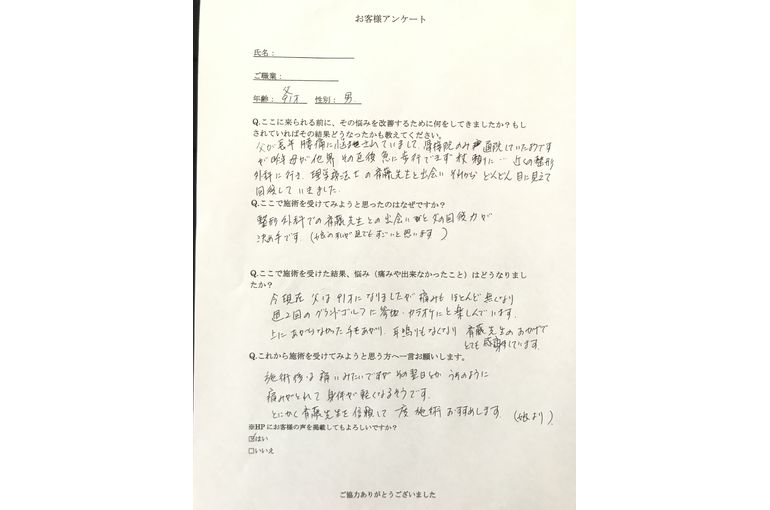 お客様アンケート
氏名：
ご職業：
父
年齢： 91才 性別： 男
Q.ここに来られる前に、その悩みを改善するために何をしてきましたか？もし
されていればその結果どうなったかも教えてください。
父が長年腰痛に悩まされていまして、骨接院のみ通院していたのです
が昨年母が他界 その直後急に歩行できず杖頼りに… 近くの整形
外科に行き、理学療法士の斉藤先生と出会い それから どんどん目に見えて
回復していきました。
Q.ここで施術を受けてみようと思ったのはなぜですか？
整形外科での斉藤先生との出会いと父の回復力が
決め手です。（娘の私が見てもすごいと思います）
Q.ここで施術を受けた結果、悩み（痛みや出来なかったこと）はどうなりまし
たか？
今現在 父は91才になりましたが痛みもほとんど無くなり
週2回のグランドゴルフに参加・カラオケにと楽しんでいます。
上にあがらなかった手もあがり、耳鳴りもなくなり 斉藤先生のおかげで
とても感謝しています。
Q.これから施術を受けてみようと思う方へ一言お願いします。
施術後は痛いみたいですが その翌日とか うそのように
痛みがとれて 身体が軽くなるそうです。
とにかく斉藤先生を信頼して一度施術おすすめします。（娘より）
※HPにお客様の声を掲載してもよろしいですか？
☑はい
□いいえ
ご協力ありがとうございました